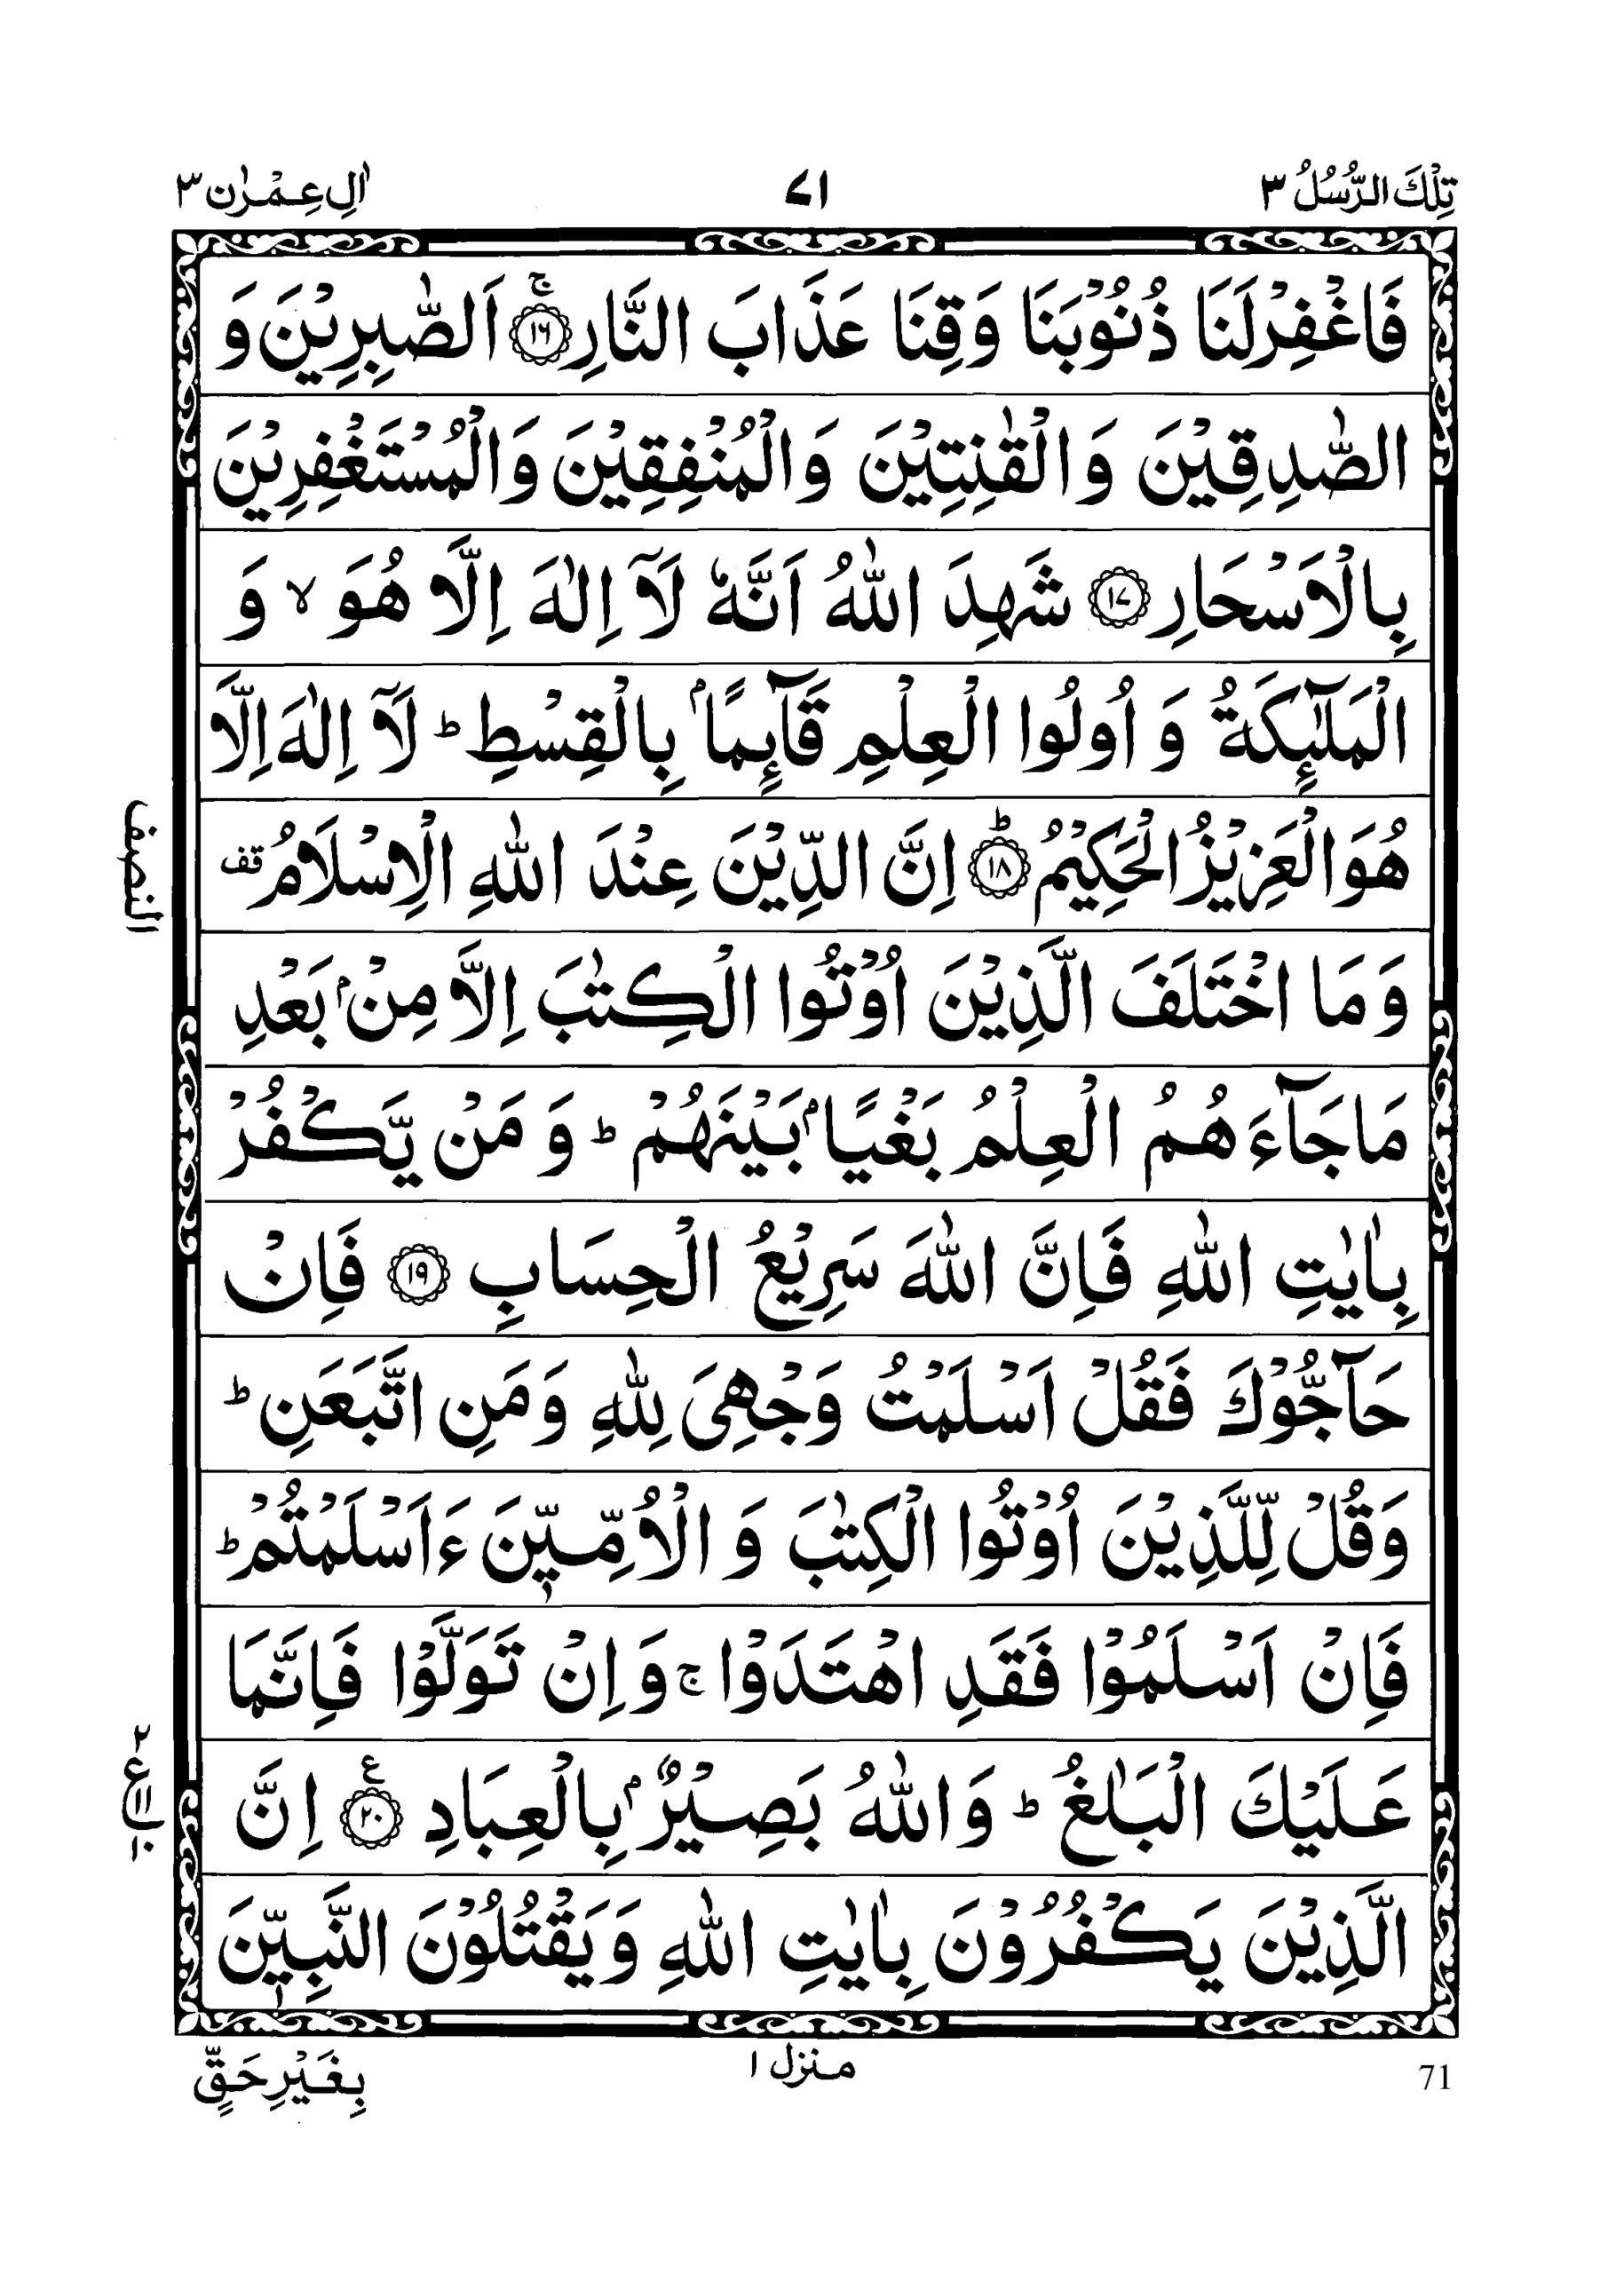 تِلْكَ الرُّسُلُ ٣
٧١
اٰلِ عِمْرٰن ٣
فَاغْفِرْلَنَا ذُنُوْبَنَا وَقِنَا عَذَابَ النَّارِ ۚ ﴿١٦﴾ اَلصّٰبِرِيْنَ وَ
الصّٰدِقِيْنَ وَالْقٰنِتِيْنَ وَالْمُنْفِقِيْنَ وَالْمُسْتَغْفِرِيْنَ
بِالْاَسْحَارِ ﴿١٧﴾ شَهِدَ اللّٰهُ اَنَّهٗ لَاۤ اِلٰهَ اِلَّا هُوَ ۙ وَ
الْمَلٰٓئِكَةُ وَ اُولُوا الْعِلْمِ قَآئِمًا ۢ بِالْقِسْطِ ؕ لَاۤ اِلٰهَ اِلَّا
هُوَ الْعَزِيْزُ الْحَكِيْمُ ؕ ﴿١٨﴾ اِنَّ الدِّيْنَ عِنْدَ اللّٰهِ الْاِسْلَامُ قف
وَمَا اخْتَلَفَ الَّذِيْنَ اُوْتُوا الْكِتٰبَ اِلَّا مِنْ ۢ بَعْدِ
مَا جَآءَهُمُ الْعِلْمُ بَغْيًا ۢ بَيْنَهُمْ ؕ وَ مَنْ يَّكْفُرْ
بِاٰيٰتِ اللّٰهِ فَاِنَّ اللّٰهَ سَرِيْعُ الْحِسَابِ ﴿١٩﴾ فَاِنْ
حَآجُّوْكَ فَقُلْ اَسْلَمْتُ وَجْهِىَ لِلّٰهِ وَمَنِ اتَّبَعَنِ ؕ
وَقُلْ لِّلَّذِيْنَ اُوْتُوا الْكِتٰبَ وَ الْاُمِّيّٖنَ ءَاَسْلَمْتُمْ ؕ
فَاِنْ اَسْلَمُوْا فَقَدِ اهْتَدَوْا ۚ وَاِنْ تَوَلَّوْا فَاِنَّمَا
عَلَيْكَ الْبَلٰغُ ؕ وَاللّٰهُ بَصِيْرٌ ۢ بِالْعِبَادِ ﴿٢٠﴾ ع اِنَّ
الَّذِيْنَ يَكْفُرُوْنَ بِاٰيٰتِ اللّٰهِ وَيَقْتُلُوْنَ النَّبِيّٖنَ
النصف
٢ ع ١١ ١٠
بِغَيْرِ حَقٍّ
منزل ١
71